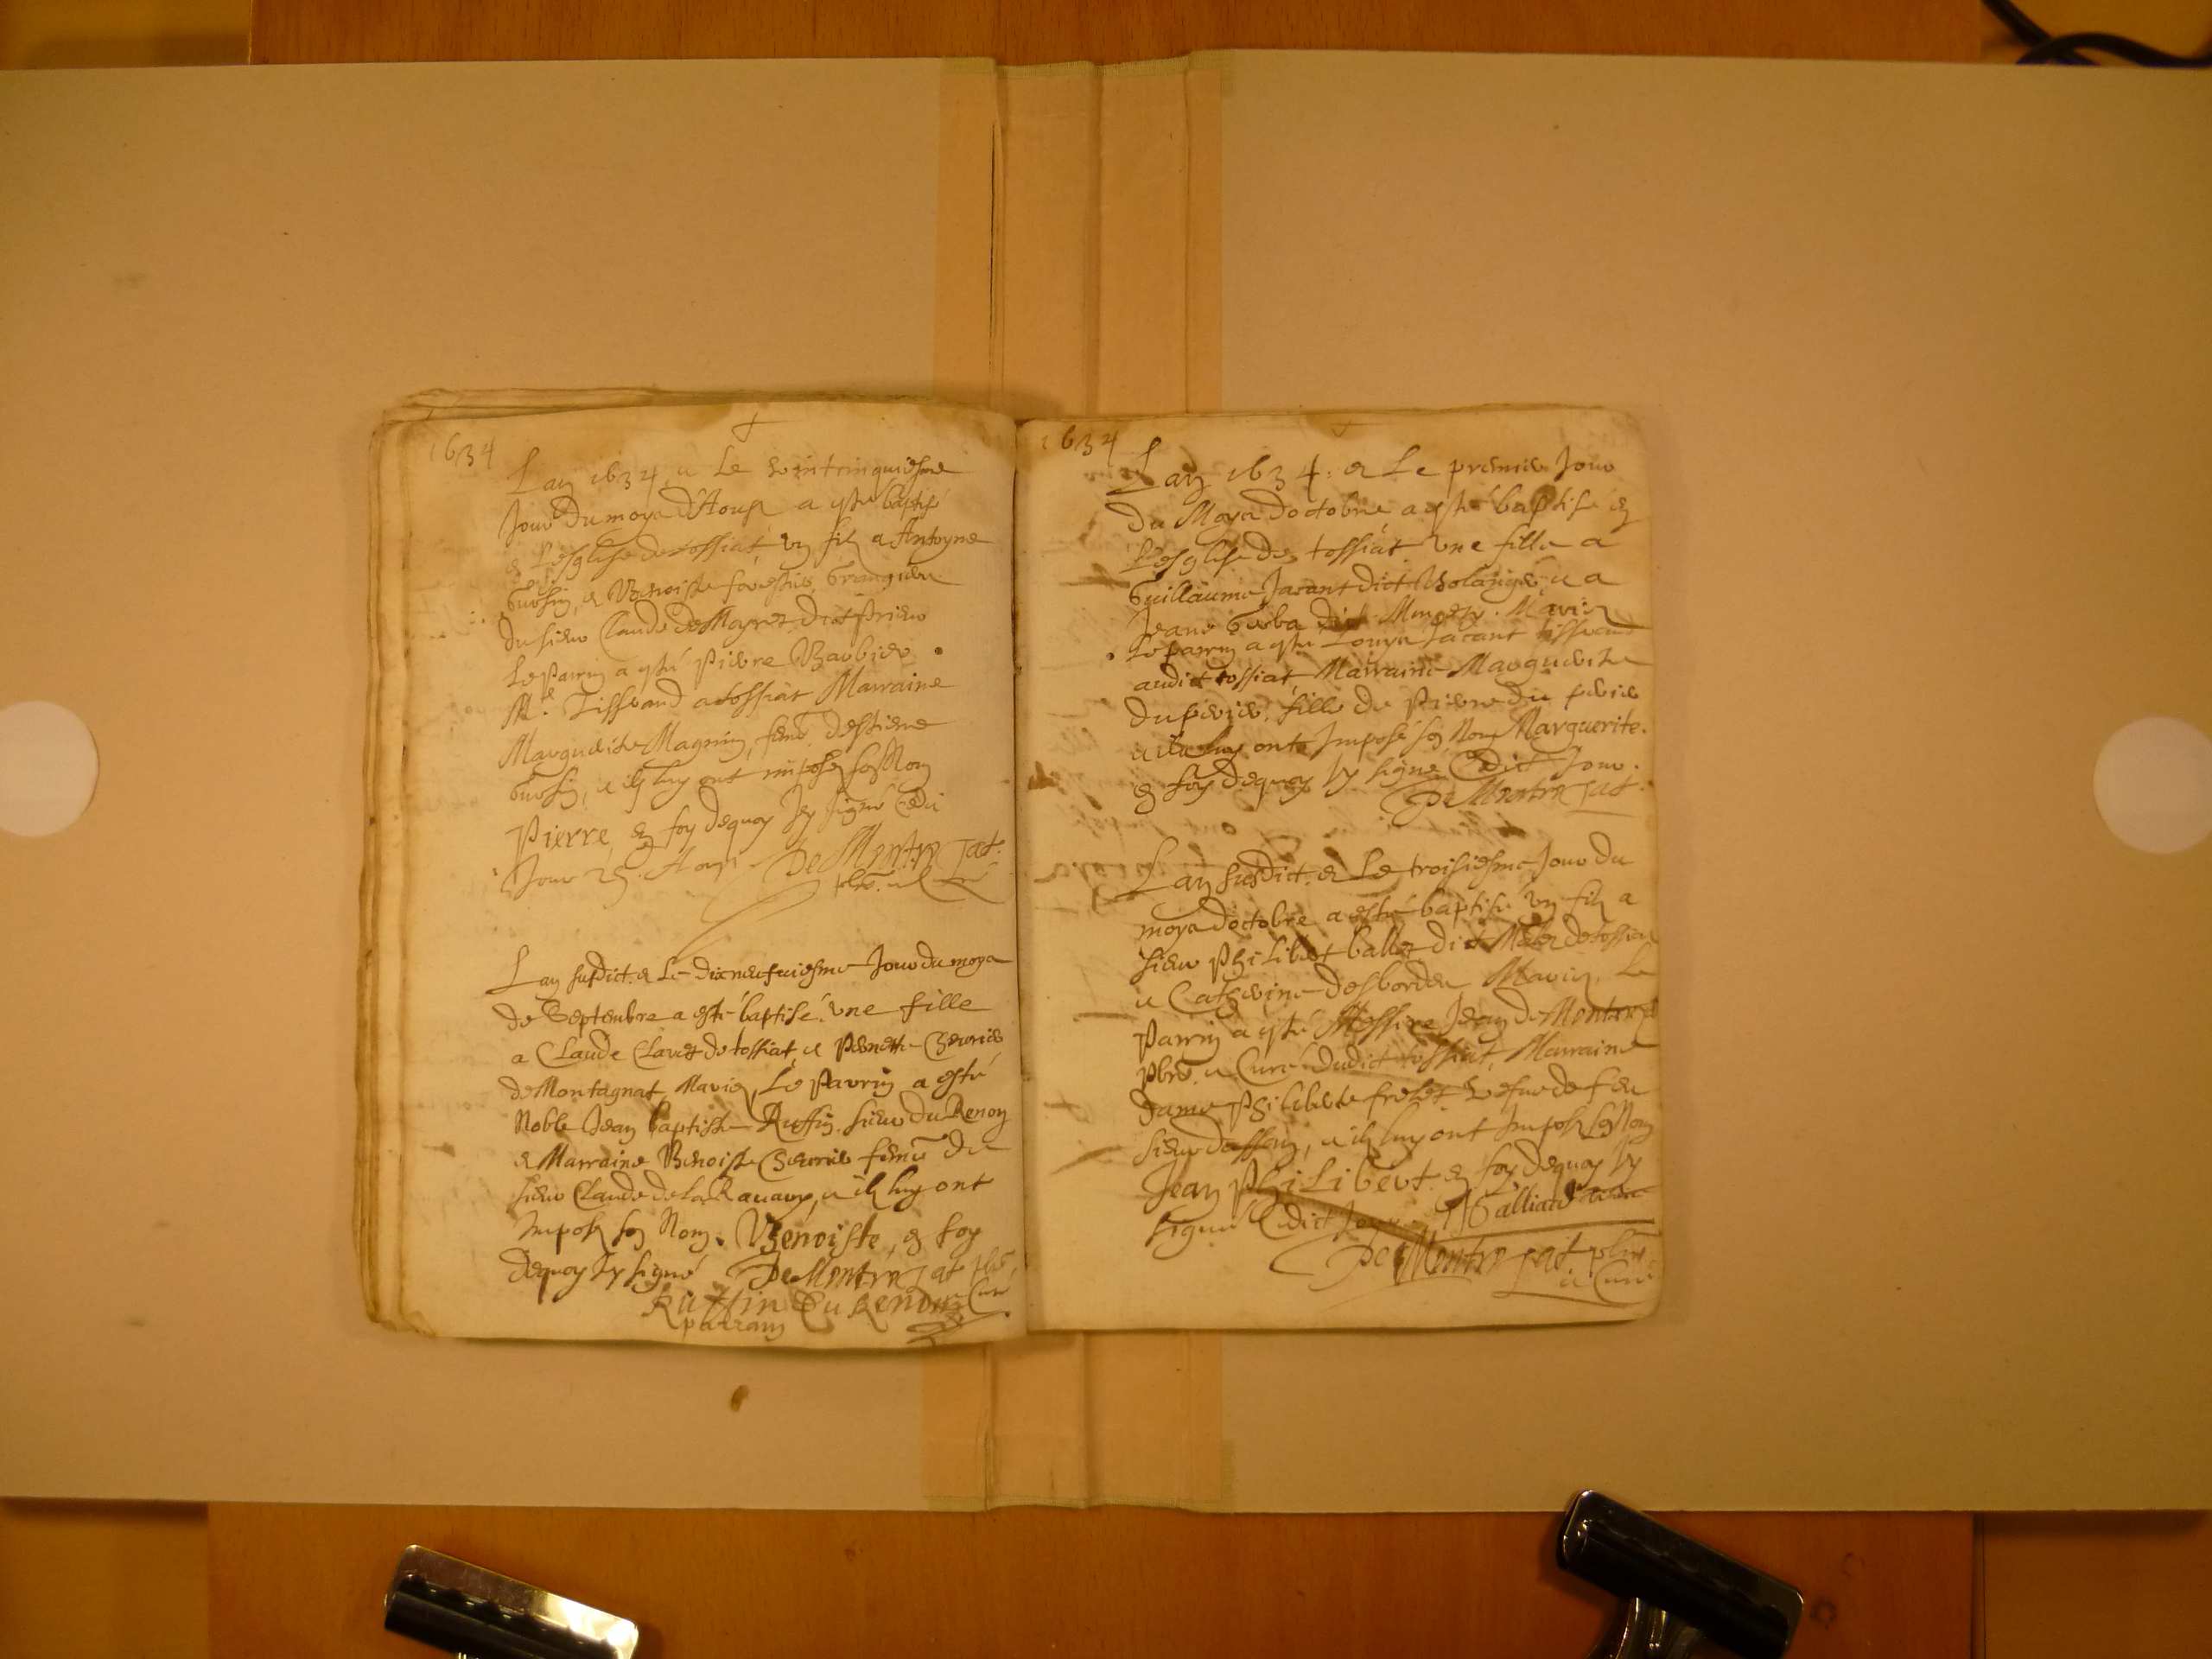 1634
Lan 1634. et Le vintcinquiesme
Jour du moys d'Aoust a esté baptisé
en L'esglise de tossiat, un filz a Antoyne
et Benoiste forestier, Grangiers
du sieur Claude de Mayret dict prieur
Le Parrin a esté Pierre Barbier
Me. Tisserand a tossiat Marraine
Marguerite Magnin, feme d'estiene
et ilz luy ont imposé son Nom
Pierre, en foy dequoy J'ey signé Cedit
Jour 25. Aoust. De Montrojat.
pbre. et Curé
Lan susdict. et Le dixneufuiesme Jour du moys
de Septembre a esté baptisé une fille
a Claude Claret de tossiat, et Pernette Chevrier
de Montagnat, Mariez, Le Parrin a esté
Noble Jean baptiste Ruffin. sieur du Renon
et Marraine Benoiste Chevrier feme du
sieur Claude de la et ilz luy ont
Imposé son Nom. Benoiste, en foy
dequoy J'ey signé De Montrojat pbre.
et Curé
Ruffin Du Renom
parrain
1634
Lan 1634. et Le premier Jour
du Moys d'octobre a esté baptisé en
L'esglise de tossiat une fille a
Guillaume Jacant dict et a
Jeane dict Mariez
Le parrin a esté Louys Jacant tisserand
audict tossiat, Marraine Marguerite
du perier, fille de Pierre du perier
et ilz luy onts Imposé son Nom Marguerite.
en foy dequoy J'ey signé Cedict Jour.
De Montrojat.
Lan susdict. et Le troisiesme Jour du
moys d'octobre a esté baptisé un filz a
sieur Philibert ballet dict de tossiat
et Catherine desbordes Mariez, Le
Parrin a esté Messire Jean de Montrojat
Pbre. et Curé dudict tossiat, Marraine
dame Philiberte vefue de feu
sieur et ilz luy ont Imposé son Nom
Jean Philibert en foy dequoy J'ey
signé Cedict Jour
De Montrojat pbre.
et Curé